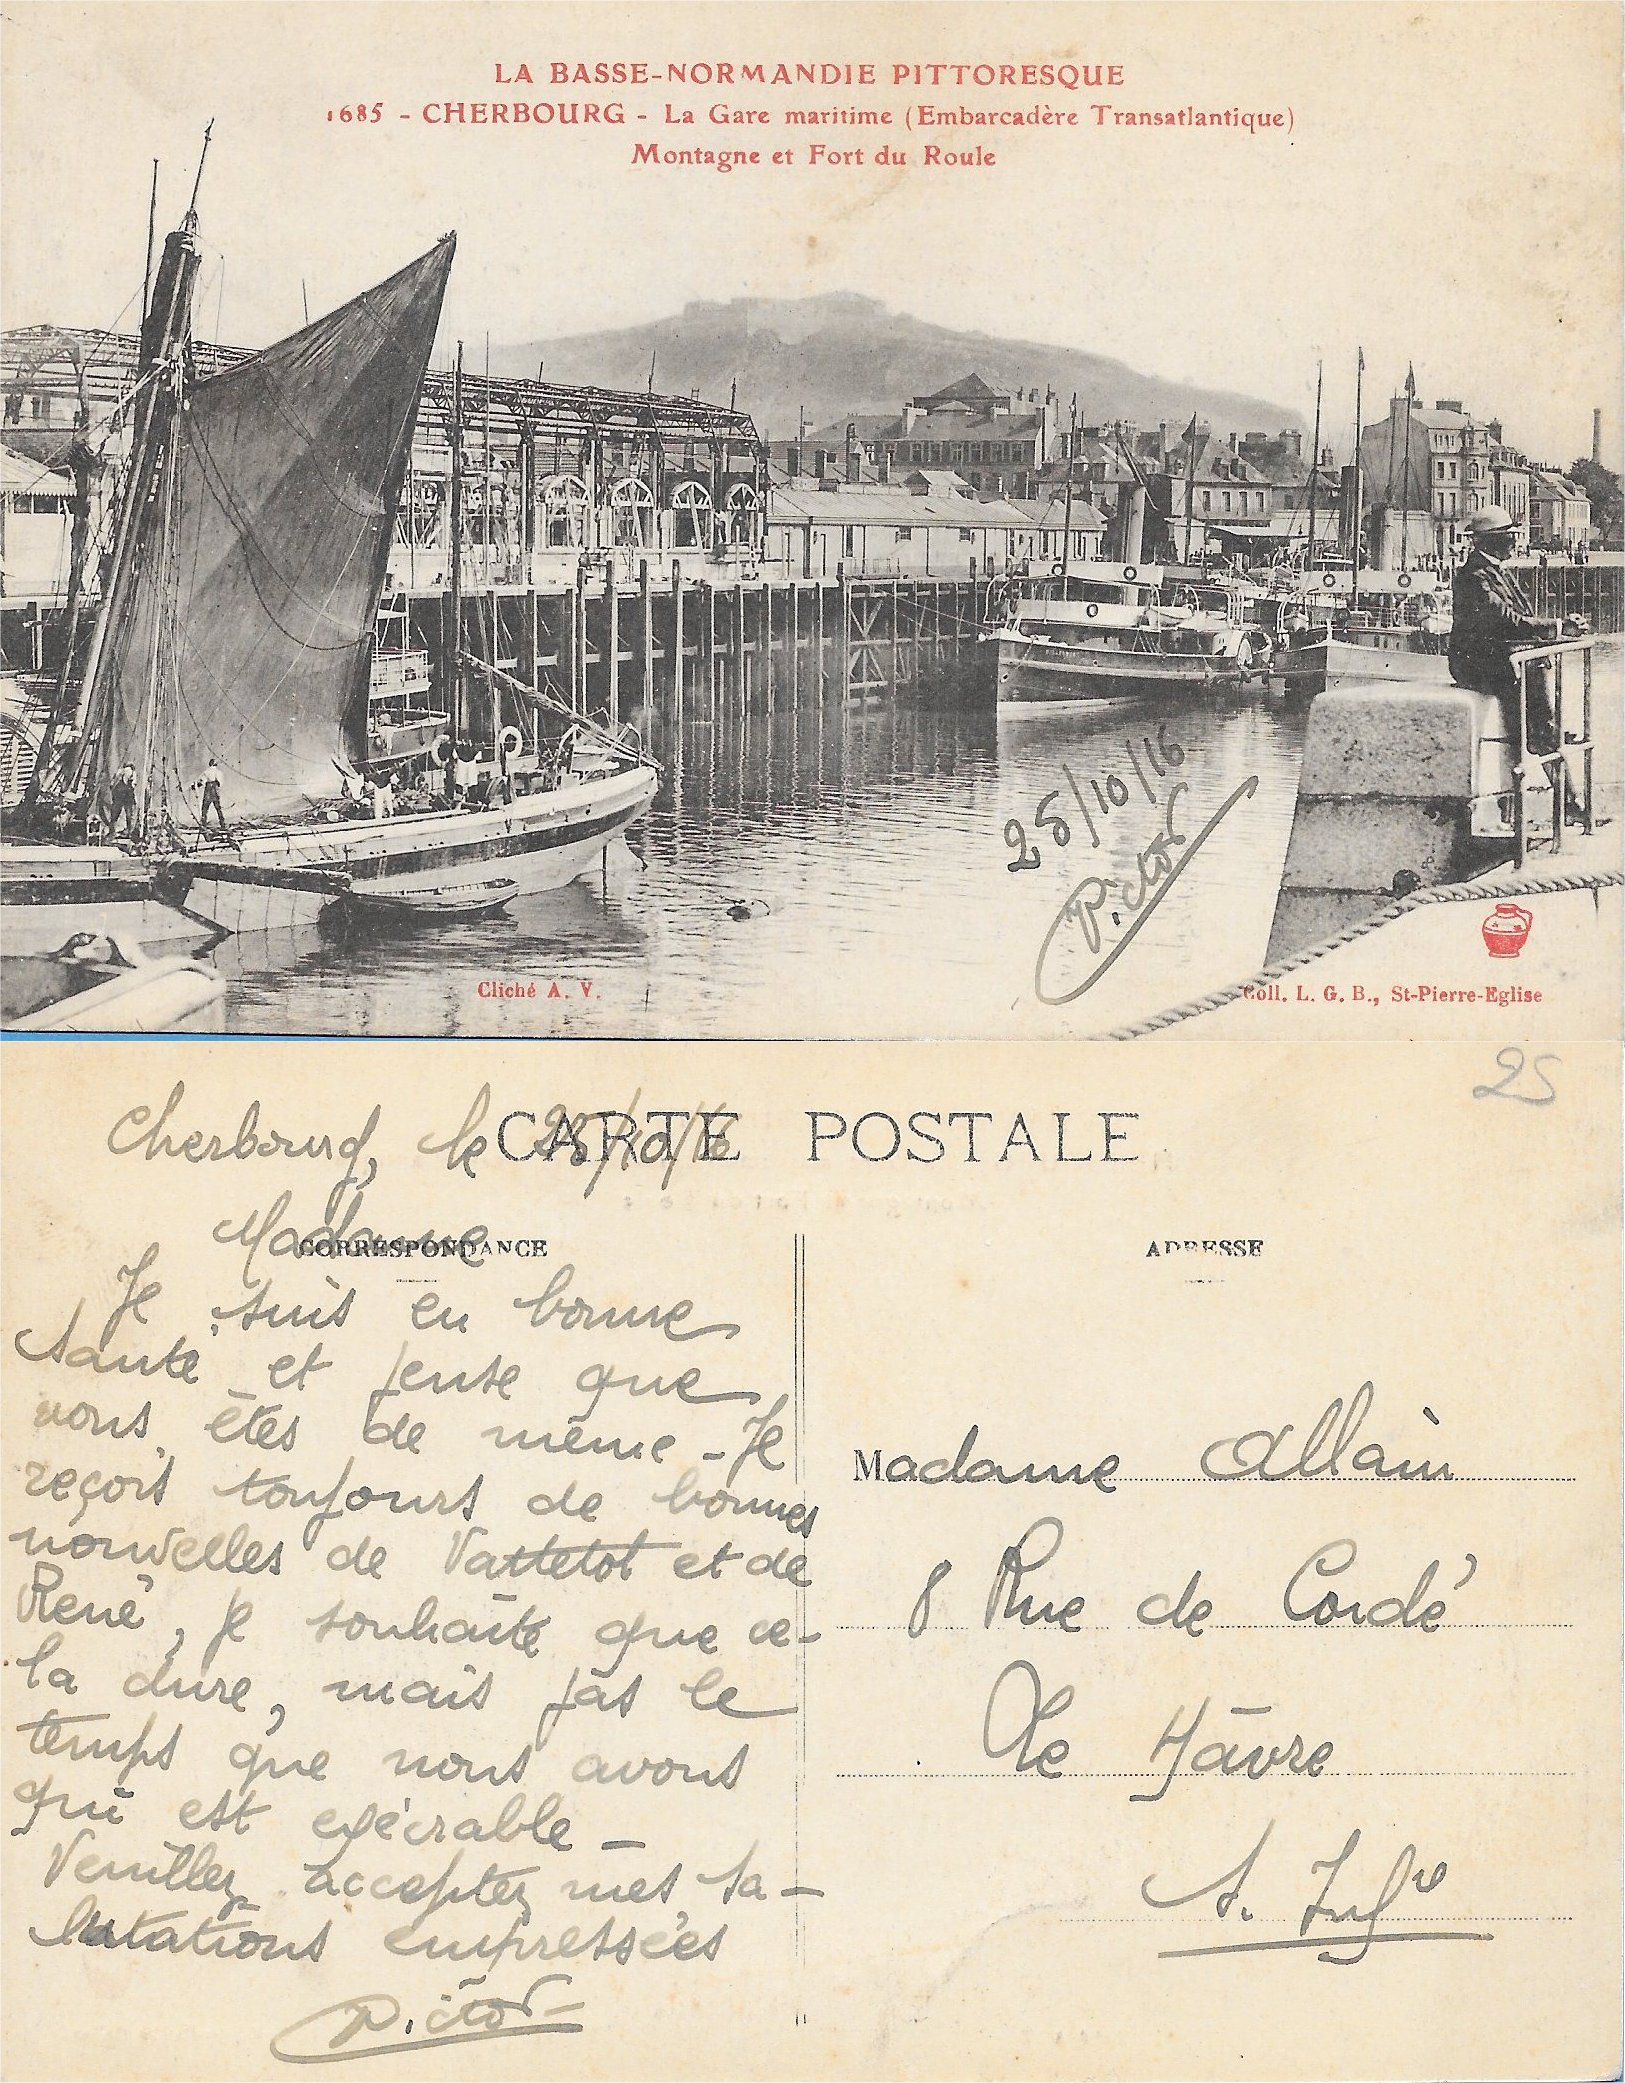 LA BASSE-NORMANDIE PITTORESQUE
1685 - CHERBOURG - La Gare maritime (Embarcadère Transatlantique)
Montagne et Fort du Roule
25/10/16
P. ictor
Cliché A. V.
Coll. L. G. B., St-Pierre-Eglise
25
CARTE POSTALE
Cherbourg, le 25/10/16
CORRESPONDANCE
Madame
Je suis en bonne
santé et pense que
vous êtes de même - Je
reçois toujours de bonnes
nouvelles de Vattetot et de
René, je souhaite que ce-
la dure, mais pas le
temps que nous avons
qui est exécrable -
Veuillez accepter mes sa-
lutations empressées
P. ictor
ADRESSE
Madame Allain
8 Rue de Condé
Le Hâvre
S. Infre